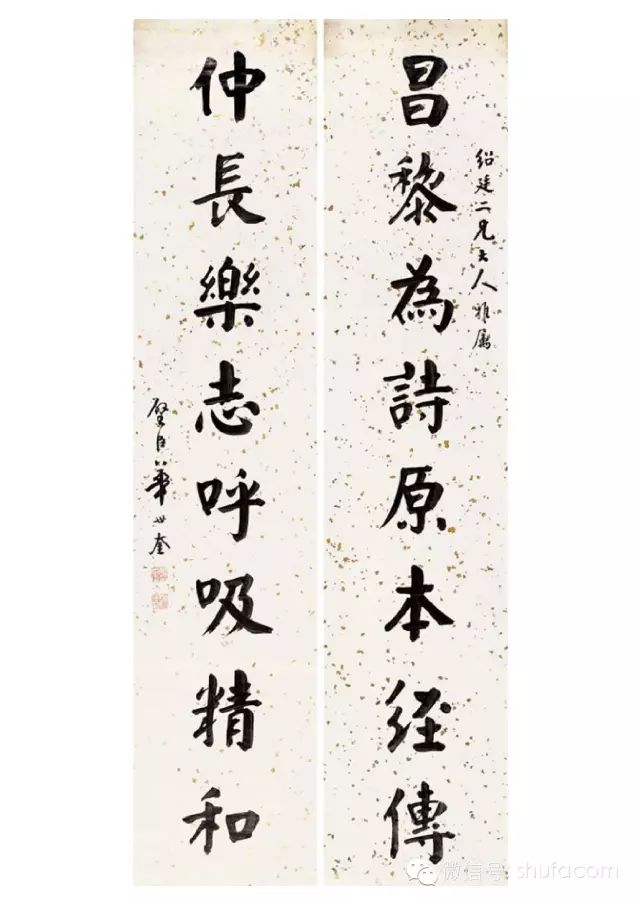 绍廷二兄大人雅属
昌黎為詩原本經傳
仲長樂志呼吸精和
璧臣華世奎
微信号: shufacom